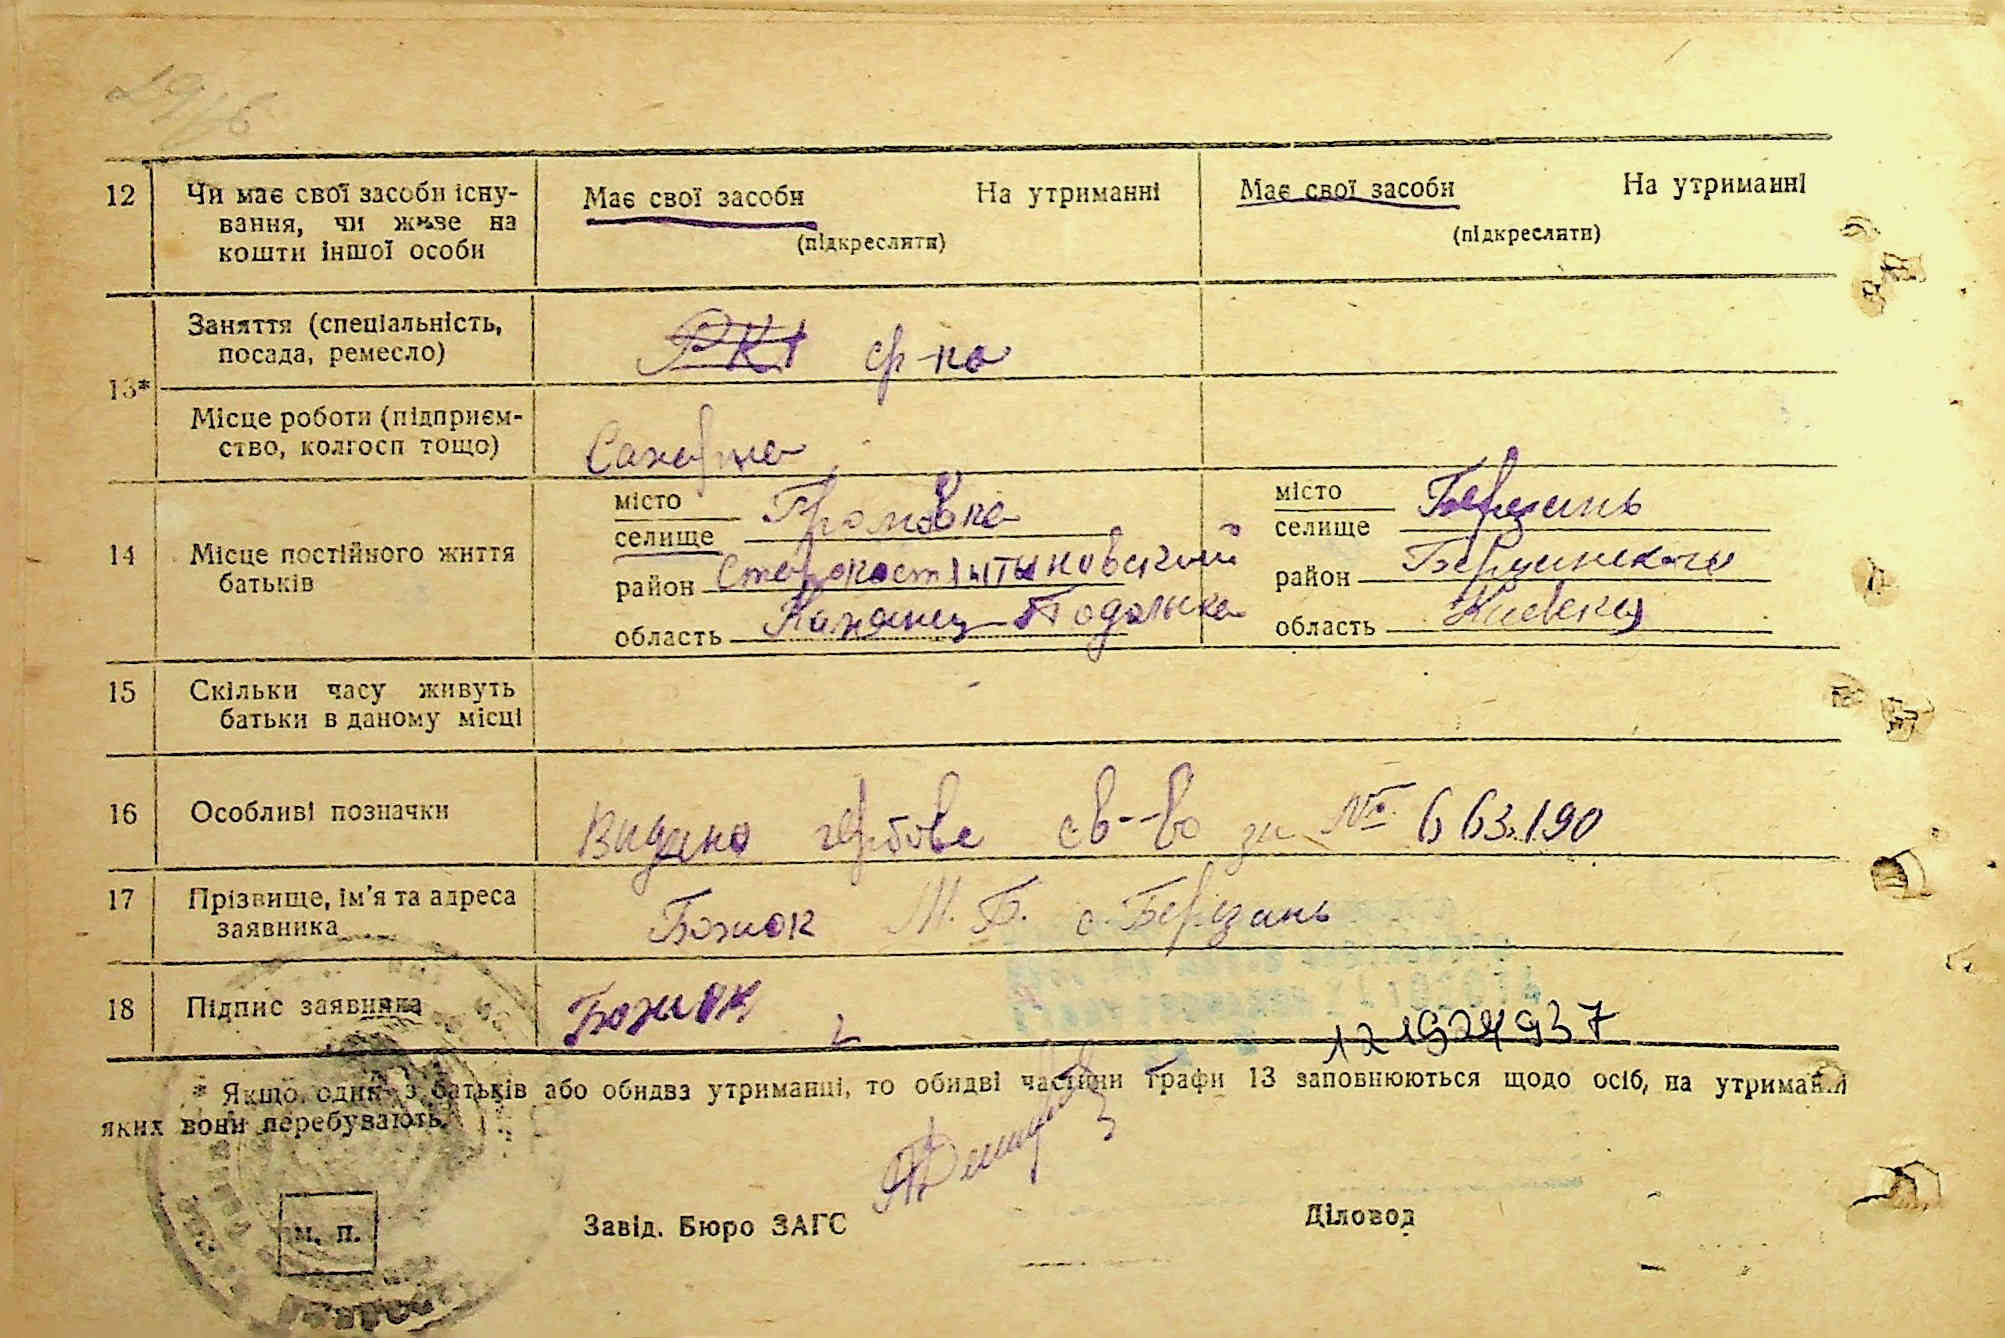 29/6
12 Чи має свої засоби існу-
вання, чи живе на
кошти іншої особи
Має свої засоби На утриманні
(підкреслити)
Має свої засоби На утриманні
(підкреслити)
13*
Заняття (спеціальність,
посада, ремесло)
ф-ка
Місце роботи (підприєм-
ство, колгосп тощо)
Сахарна
14 Місце постійного життя
батьків
місто
селище
район
область Каменец-Подольска
місто Березань
селище
район
область Киевска
15 Скільки часу живуть
батьки в даному місці
16 Особливі позначки
Видано гербове св-во за № 663.190
17 Прізвище, ім'я та адреса
заявника
Божок М. Б. с. Березань
18 Підпис заявника
Божок
* Якщо один з батьків або обидва утриманці, то обидві частини графи 13 заповнюються щодо осіб, на утриманні
яких вони перебувають.
М. П.
Завід. Бюро ЗАГС
Діловод